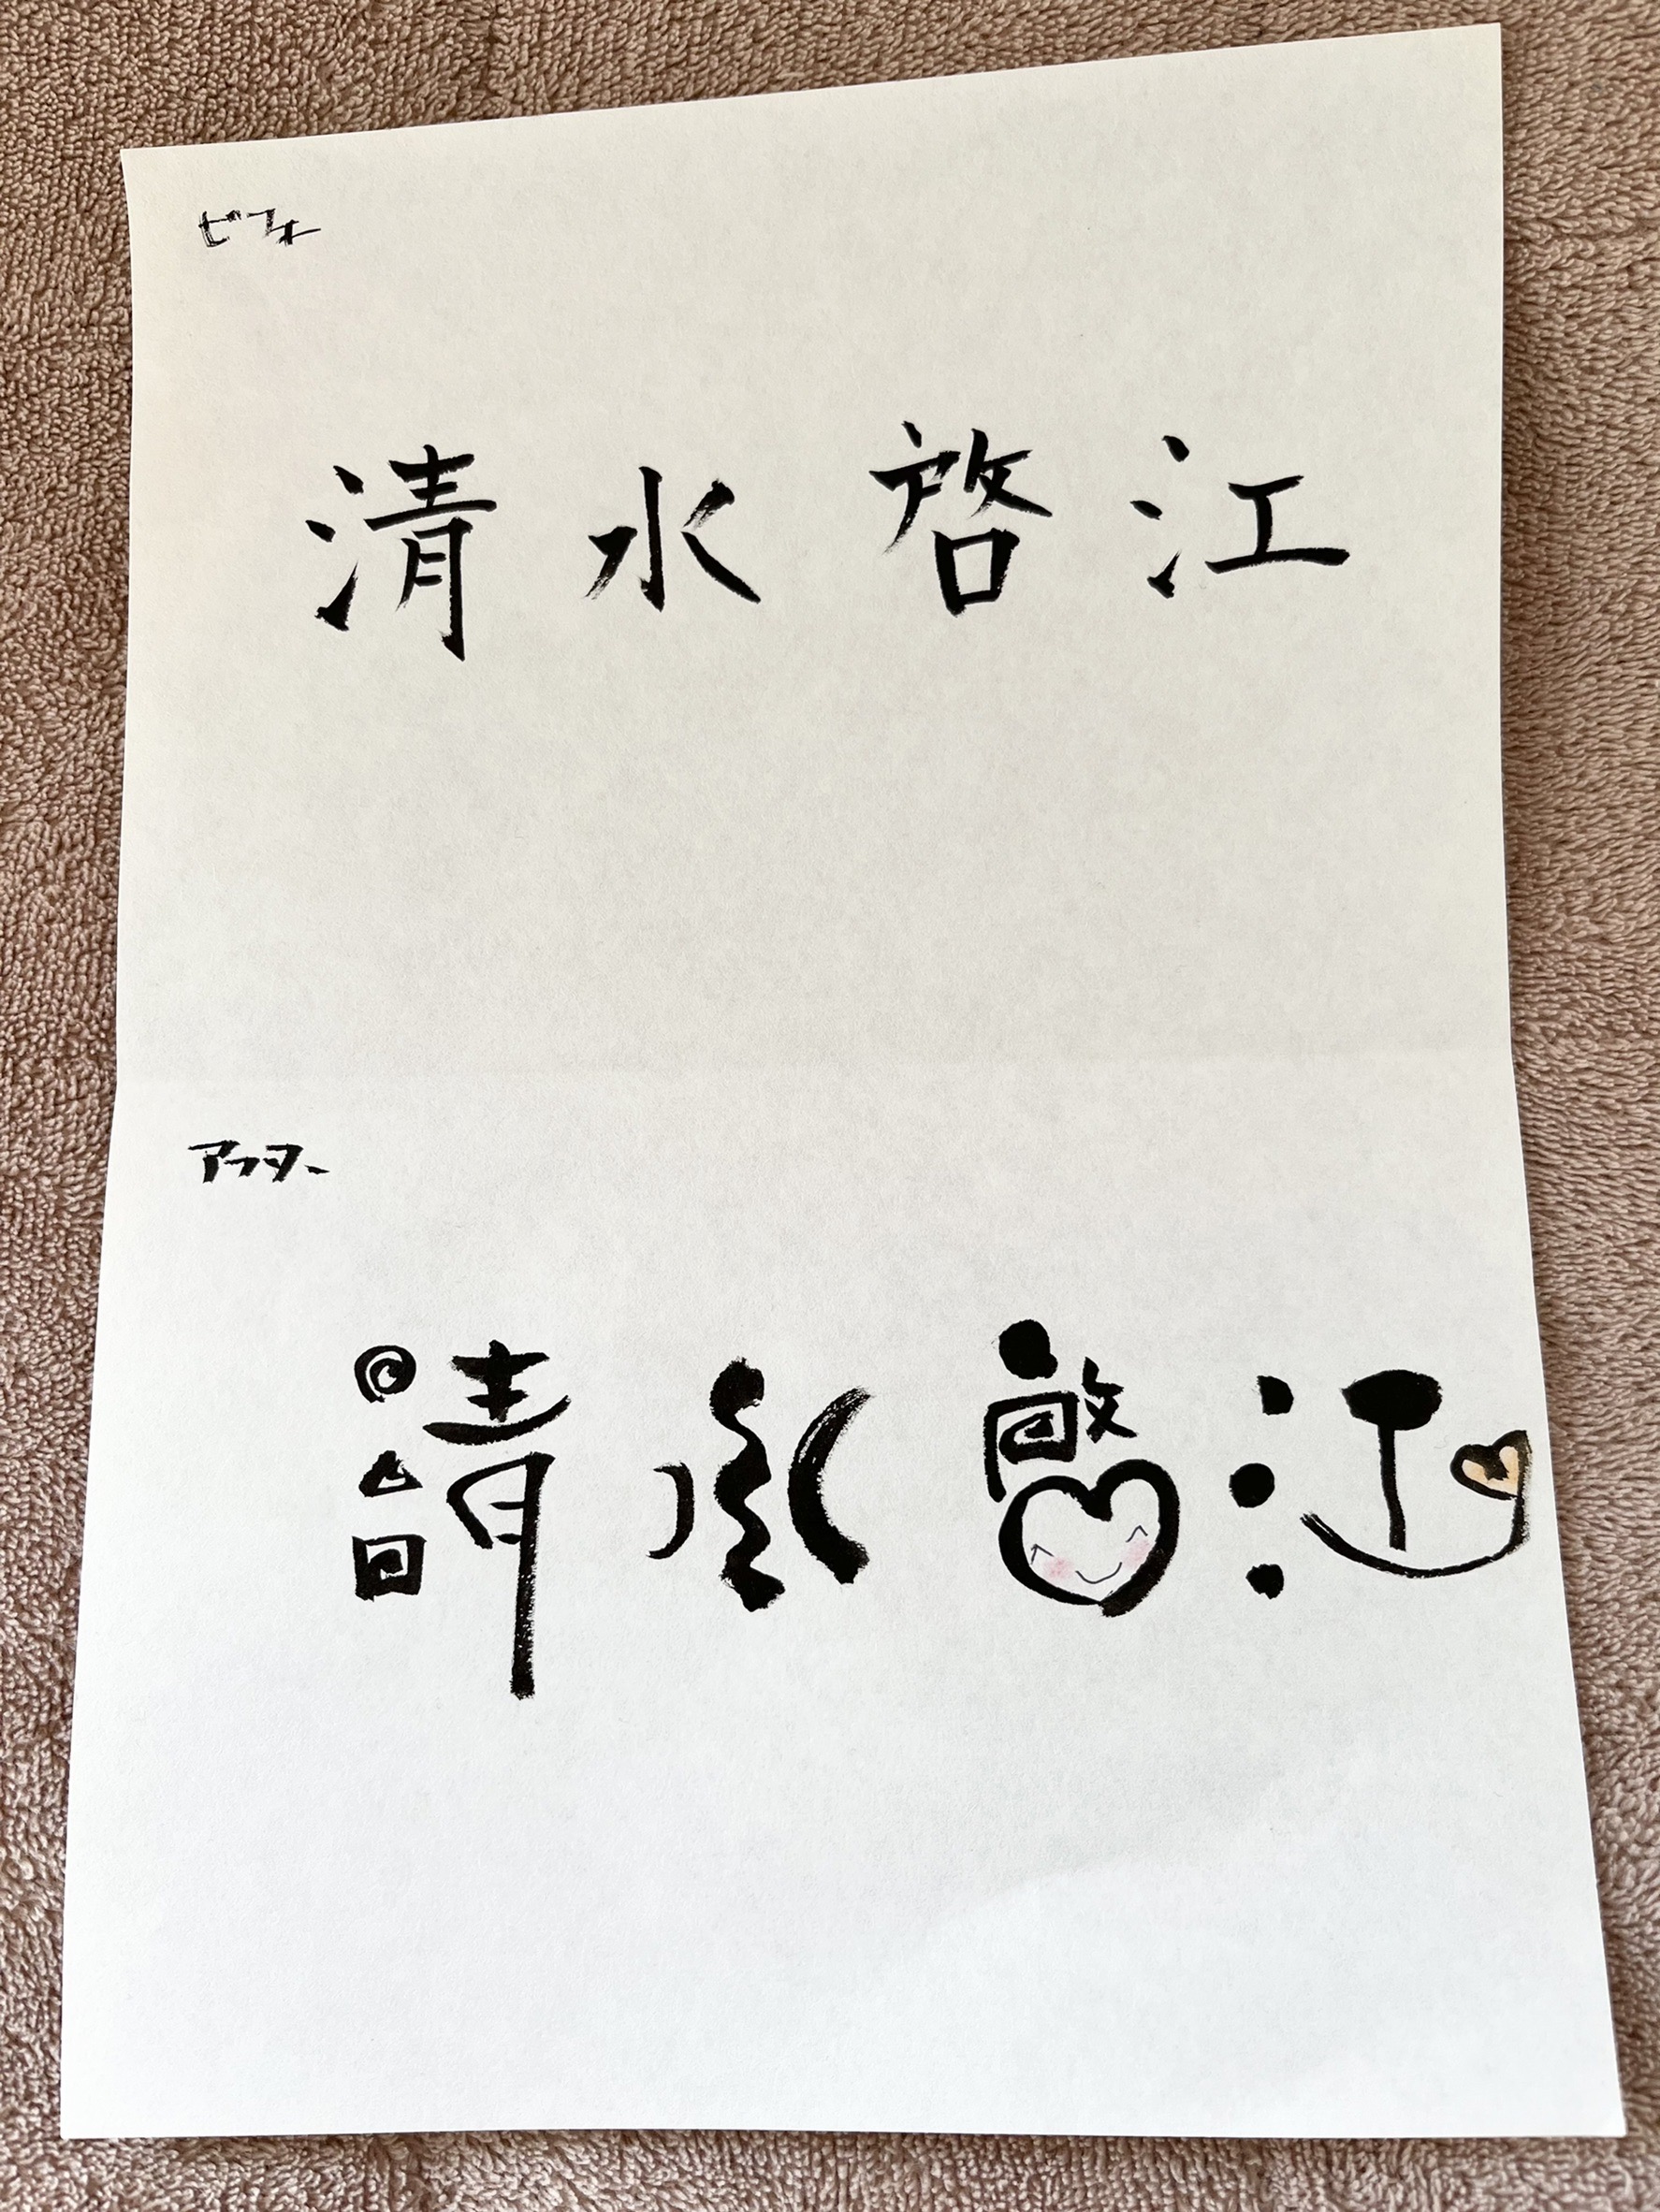 ビフォー
清水啓江
アフター
清水啓江